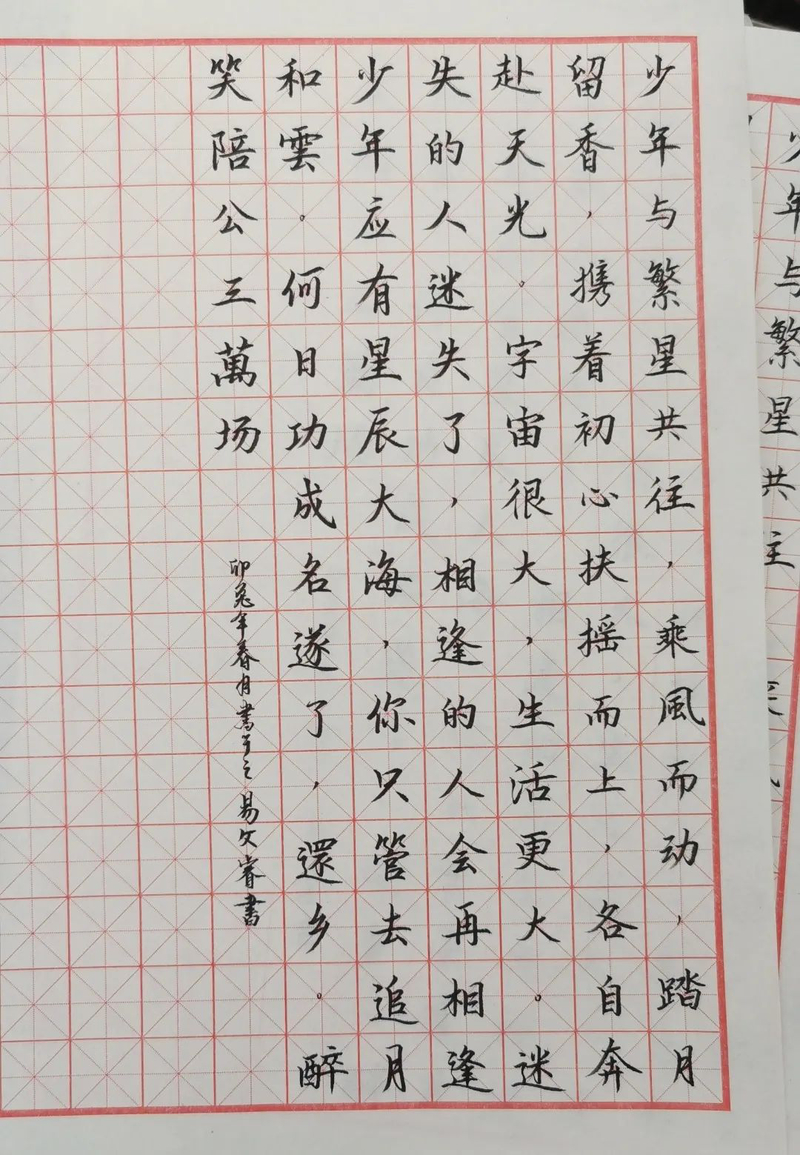 少年与繁星共往，乘風而动，踏月
留香，携着初心扶摇而上，各自奔
赴天光。字宙很大，生活更大。迷
失的人迷失了，相逢的人会再相逢
少年应有星辰大海，你只管去追月
和雲。何日功成名遂了，還乡。醉
笑陪公三萬场
卯兔年春月書
易文睿書
少年与繁星共主